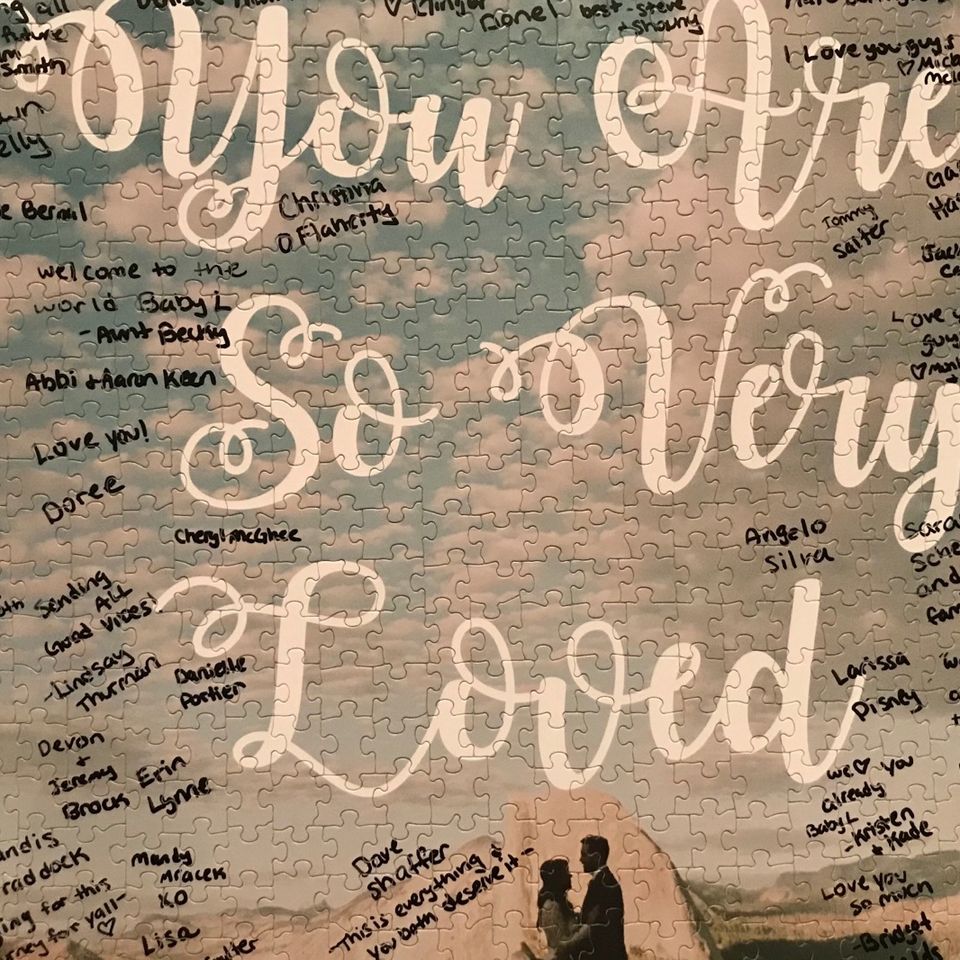 You Are
So Very
Loved
future
Smith
Lionel
best - steve
+ Shauny
I Love you guys
elly
Christina
O Flaherity
Tommy
Salter
welcome to the
world Baby L
- Aunt Becky
Abbi + Aaron Keen
Love you!
Doree
Cheryl McGhee
Angelo
Silva
Love y
guy
Sara
Sche
and
fam
Sending
ALL
Good Vibes!
- Lindsay
Thurman
Danielle
Portier
Devon
+
Jeremy
Brock
Erin
Lynne
Larissa
Disney
we ♡ you
already
Baby L
- Kristen
+ Kade
andis
raddock
ing for this
rney for yall-
♡
Mandy
Mracek
KO
Lisa
oulter
Dave
Shaffer
- This is everything &
you both deserve it -
Love you
so much
- Bridget